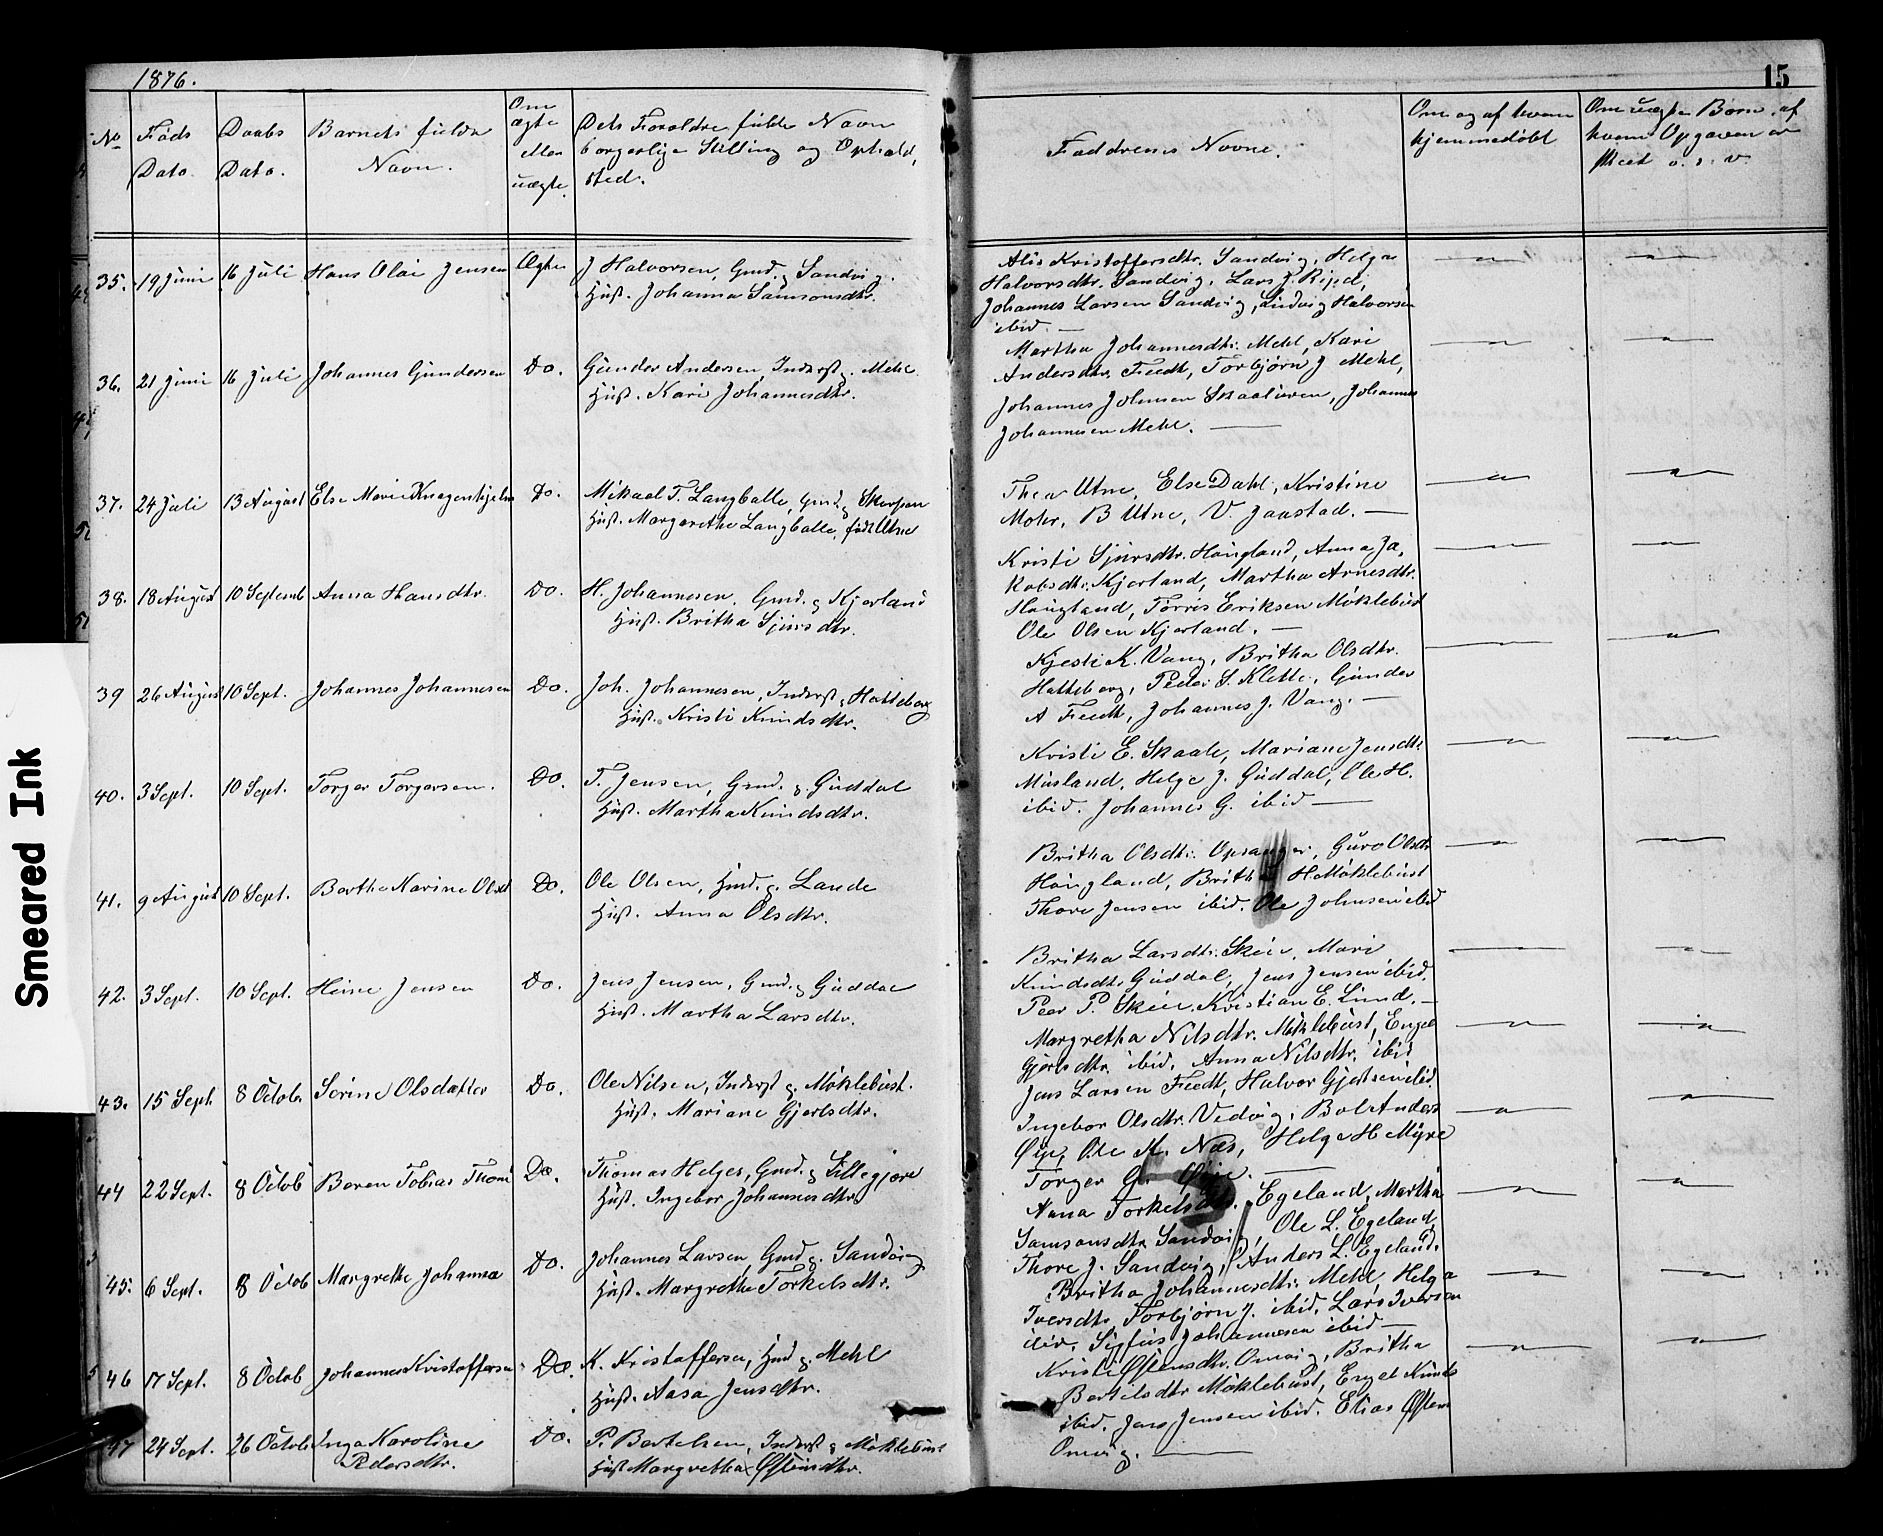 1876.
15
No
Föds Dato.
Daabs Dato.
Barnets fulde Navn.
Om ægte eller uægte.
Dets Forældre fulde Navn borgerlige Stilling og Ophold, sted.
Faddrenes Navne.
Om og af hvem hjemmedøbt
Om uægte Børn, af hvem Opgaven er skeet o. s. v.
35. 19 Juni 16 Juli Hans Olai Jensen Ægte J Halvorsen, Gmd. g. Sandvig.
Hust. Johanna Samsonsdtr.
Alis Kristoffersdtr. Sandvig, Helga
Halvorsdtr. Sandvig, Lars J.
Johannes Larsen Sandvig, Ludvig Halvorsen
ibid. —
36. 21 Juni 16 Juli Johannes Gundersen Do. Gunder Andersen, Inderst g. Mehl.
Hust. Kari Johannesdtr.
Martha Johannesdtr. Mehl, Kari
Andersdtr. Feedt, Torbjørn J Mehl,
Johannes Johnsen Skaaluren, Johannes
Johannesen Mehl. —
37. 24 Juli 13 August Else Marie Knagenhjelm Do. Mikael T. Langballe, Gmd. g. Skorpen
Hust. Margarethe Langballe, född Utne
Thea Utne, Else Dahl, Kristine
Mohr, B Utne, V. Jaastad. —
38. 18 August 10 Septemb Anna Hansdtr. Do. H. Johannesen, Gmd. g Kjerland
Hust. Britha Sjursdtr.
Kristi Sjursdtr. Haugland, Anna Ja,
kobsdtr. Kjerland, Martha Arnesdtr.
Haugland, Torris Eriksen Möklebust
Ole Olsen Kjerland. —
39 26 August 10 Sept. Johannes Johannesen Do. Joh. Johannesen, Inderst g Hatteberg
Hust. Kristi Knudsdtr.
Kjesti K. Vang, Britha Olsdtr.
Hatteberg, Peder S. Klette, Gunder
A Feedt, Johannes J. Vang. —
40. 3 Sept. 10 Sept. Torger Torgersen. Do. T. Jensen, Gmd. g. Guddal
Hust. Martha Knudsdtr.
Kristi E. Skaale, Mariane Jensdtr
Musland, Helge J. Guddal, Ole H.
ibid. Johannes G. ibid —
41. 9 August 10 Sept. Berthe Karine Olsd Do. Ole Olsen, Hmd. g. Lande
Hust. Anna Olsdtr.
Britha Olsdtr. Opsanger, Guro Olsdtr
Haugland, Britha H Möklebust
Thore Jensen ibid. Ole Johnsen ibid
42. 3 Sept. 10 Sept. Heine Jensen Do. Jens Jensen, Gmd. g Guddal
Hust. Martha Larsdtr.
Britha Larsdtr. Skeie, Mari
Knudsdtr Guddal, Jens Jensen ibid.
Peer P. Skeie. Kristian E. Lund. —
43. 15 Sept. 8 Octob. Serine Olsdatter Do. Ole Nilsen, Inderst g. Möklebust.
Hust. Mariane Gjertsdtr.
Margretha Nilsdtr. Möklebust, Engel
Gjertsdtr. ibid. Anna Nilsdtr. ibid
Jens Larsen Feedt, Halvor Gjertsen ibid.
44 22 Sept. 8 Octob Beren Tobias Thom Do. Thomas Helges, Gmd. g Lillegjere
Hust. Ingebor Johannesdtr
Ingebor Olsdtr. Vedvig, Bol Anders
Øye, Ole K. Næs, Helge H Myre
Torger G. Øye. —
45. 6 Sept. 8 Octob Margrethe Johanna Do. Johannes Larsen, Gmd. g. Sandvig
Hust. Margrethe Torkelsdtr.
Anna Torkelsdtr. Egeland, Martha
Samsonsdtr Sandvig, Ole L. Egeland,
Thore J. Sandvig, Anders L. Egeland.
46 17 Sept. 8 Octob Johannes Kristoffersen Do. K. Kristoffersen, Hmd g. Mehl
Hust. Aasa Jensdtr.
Britha Johannesdtr. Mehl, Helga
Iversdtr, Torbjørn J. ibid. Lars Iversen
ibid. Sjfus Johannesen ibid —
47 24 Sept. 26 Octob Inga Karoline
Pedersdtr. Do. P. Bertelsen, Inderst g Möklebust
Hust Margretha Østensdtr.
Kristi Østensdtr. Omvig, Britha
Bertelsdtr Möklebust, Engel Knuds
ibid. Jens Jensen ibid. Elias Østen
Omvig. —
Smeared Ink